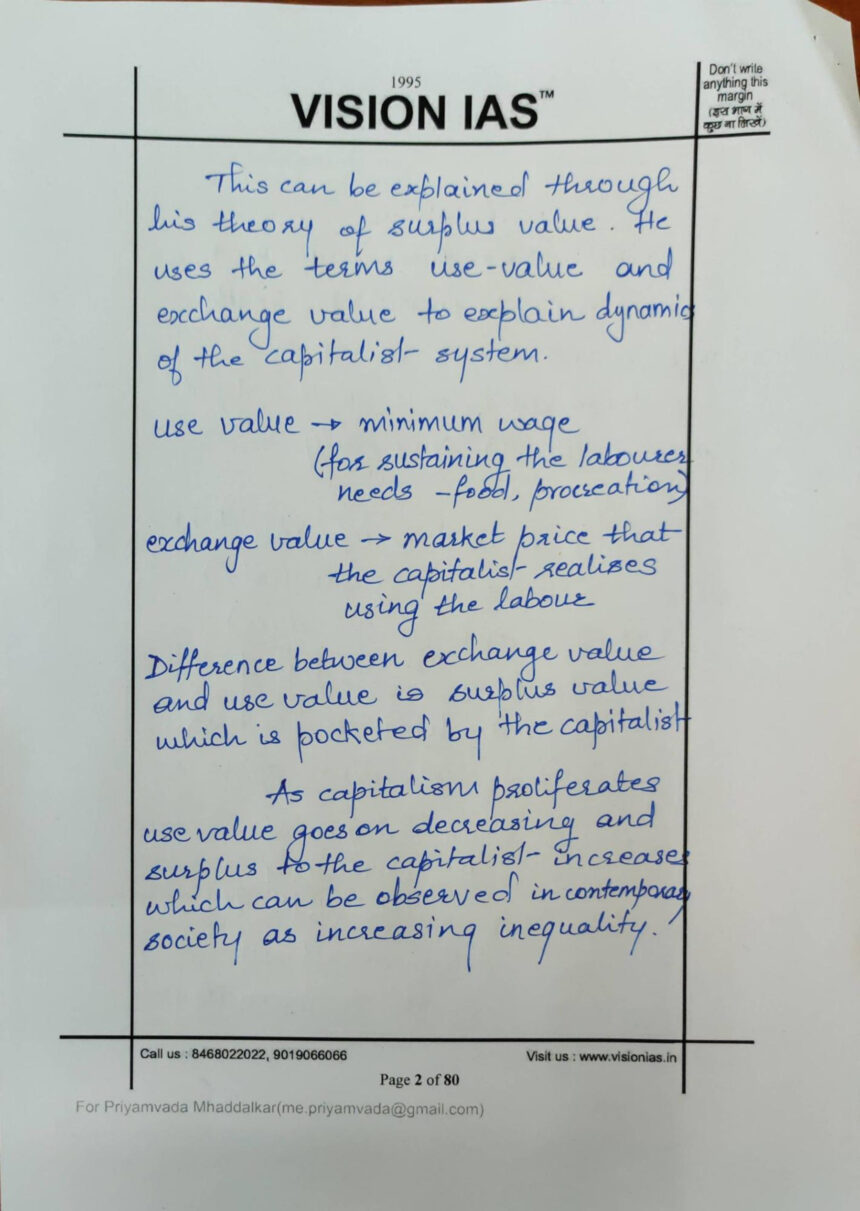 1995
VISION IAS™
Don't write
anything this
margin
(इस भाग में
कुछ ना लिखें)
This can be explained through
his theory of surplus value. He
uses the terms use-value and
exchange value to explain dynamic
of the capitalist system.
use value → minimum wage
(for sustaining the labourer
needs - food, procreation)
exchange value → market price that
the capitalist realises
using the labour
Difference between exchange value
and use value is surplus value
which is pocketed by the capitalist
As capitalism proliferates
use value goes on decreasing and
surplus to the capitalist increases
which can be observed in contemporary
society as increasing inequality.
Call us : 8468022022, 9019066066
Visit us : www.visionias.in
Page 2 of 80
For Priyamvada Mhaddalkar(me.priyamvada@gmail.com)